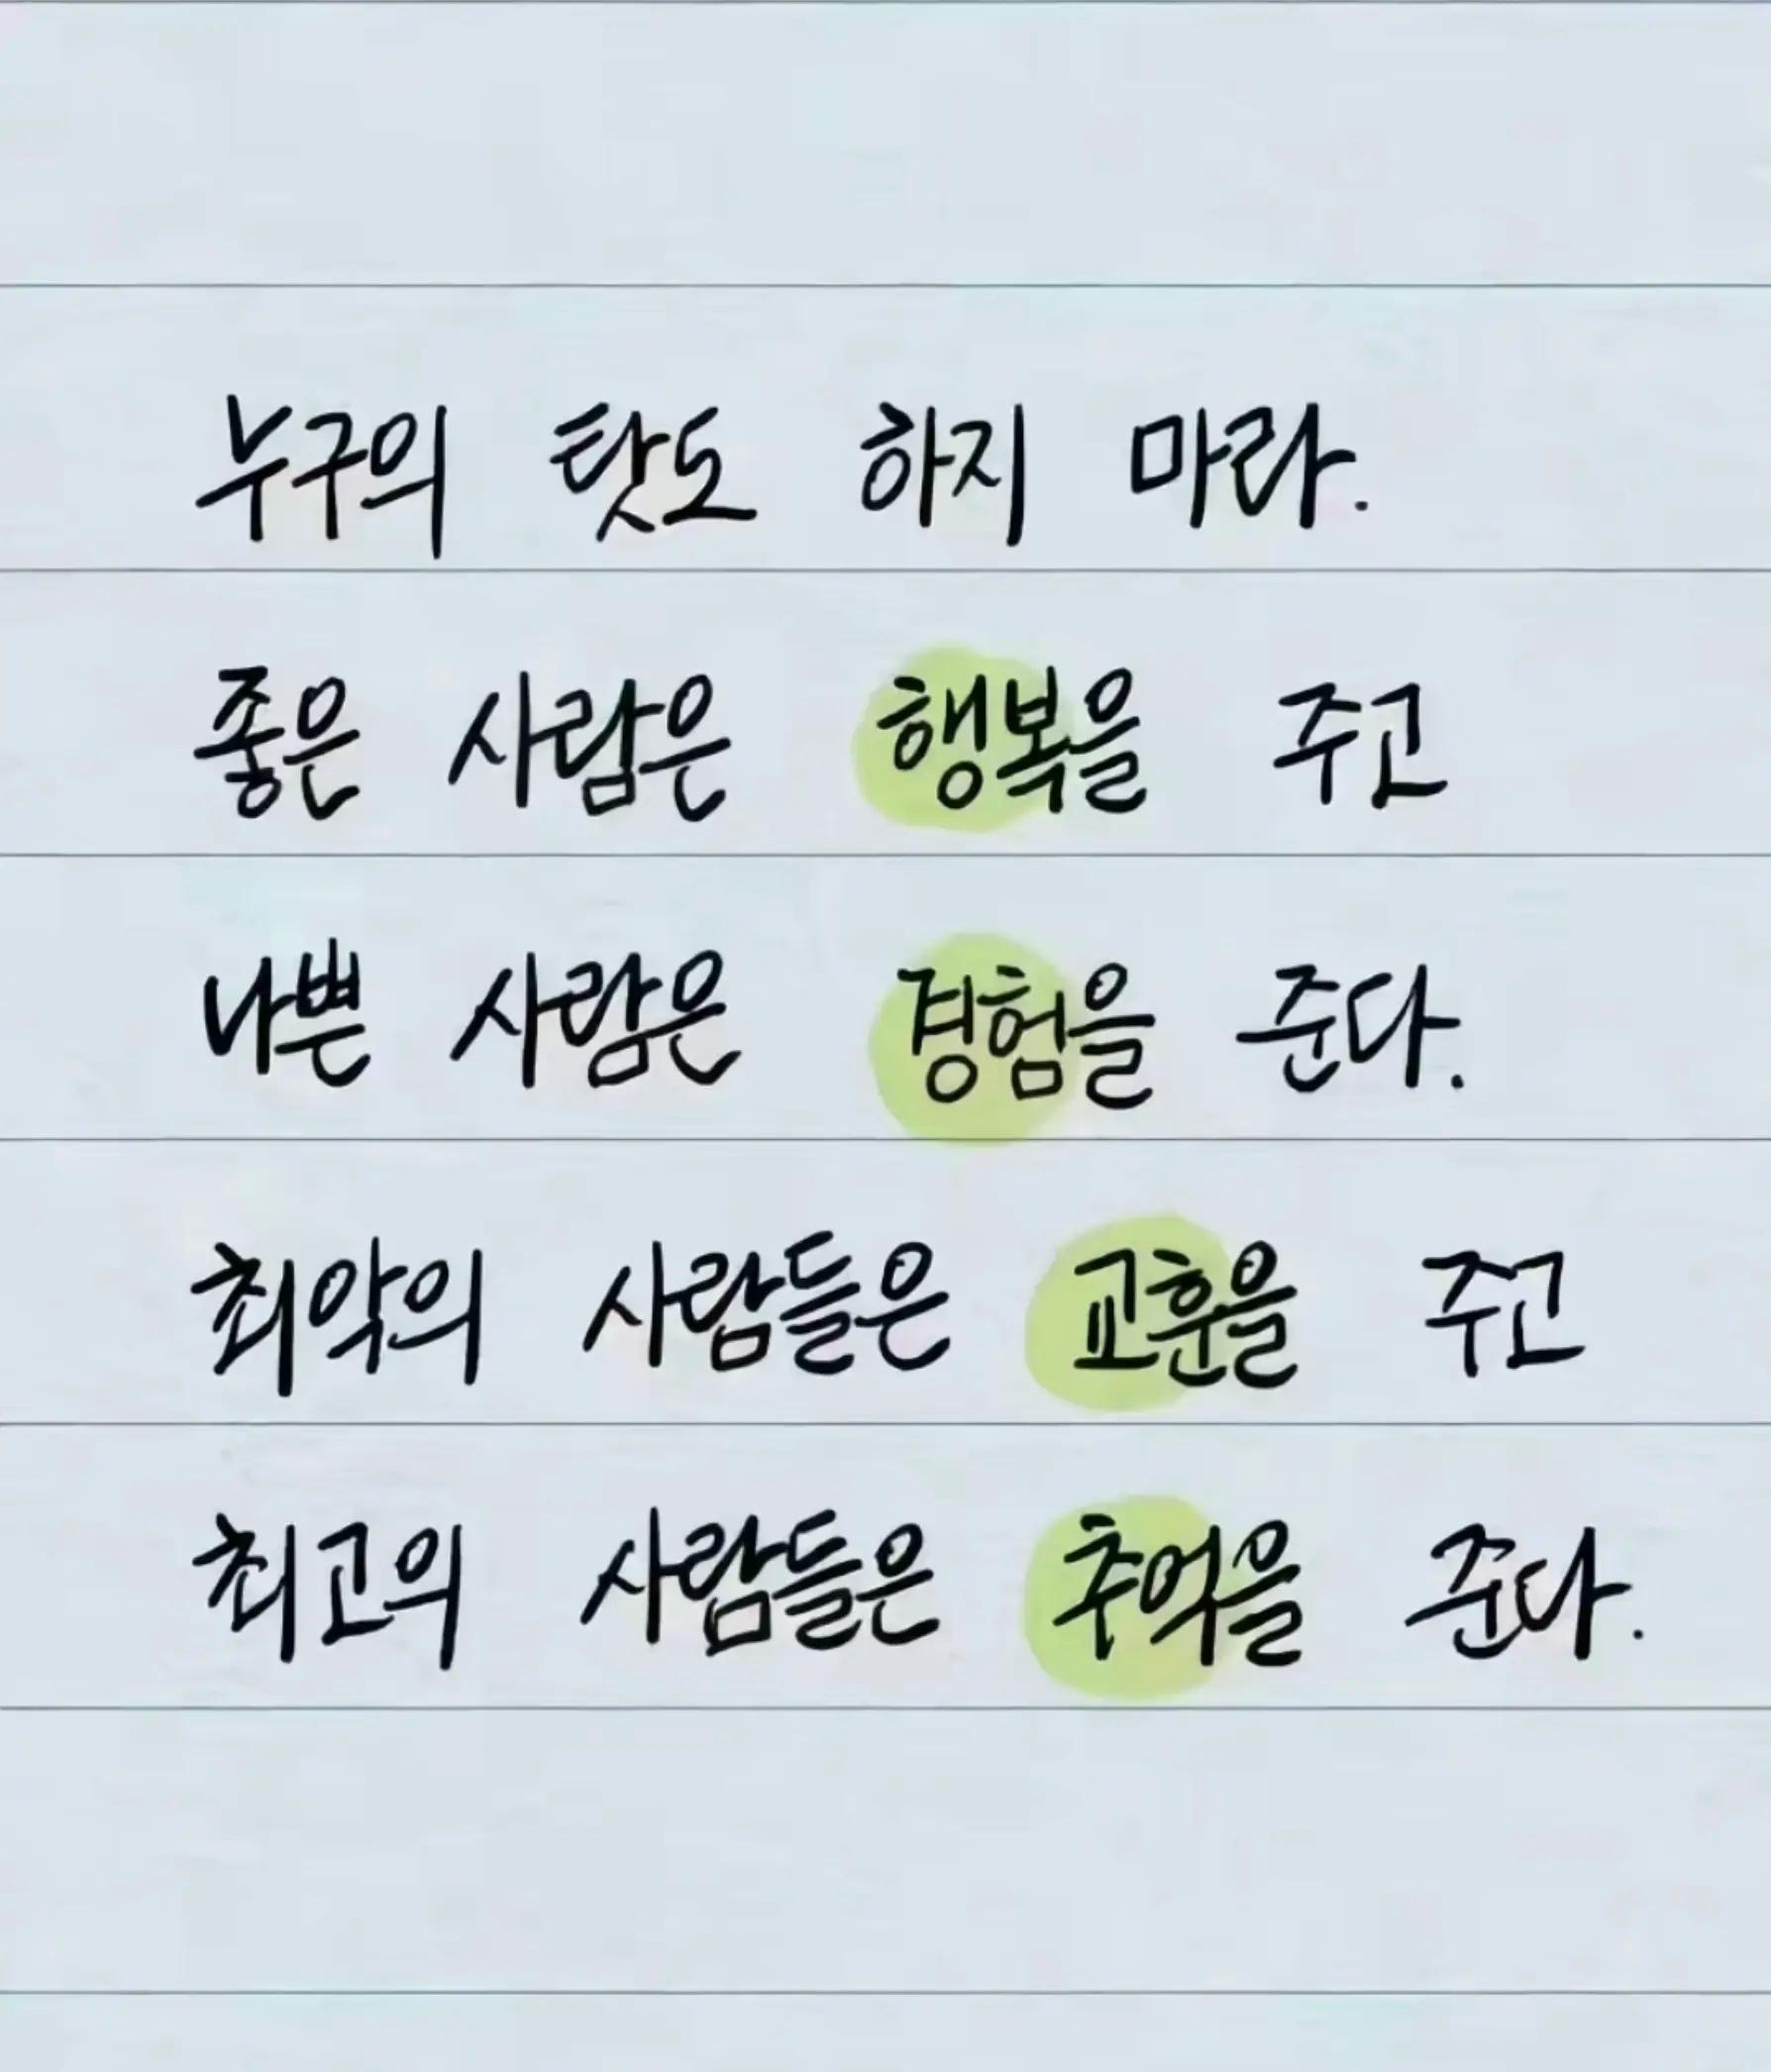 누구의 탓도 하지 마라.
좋은 사람은 행복을 주고
나쁜 사람은 경험을 준다.
최악의 사람들은 교훈을 주고
최고의 사람들은 추억을 준다.